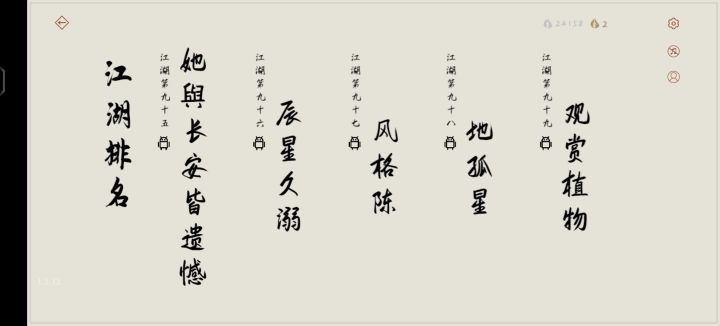 24158
2
江湖排名
江湖第九十五
她與长安皆遗憾
江湖第九十六
辰星久溺
江湖第九十七
风格陈
江湖第九十八
地孤星
江湖第九十九
观赏植物